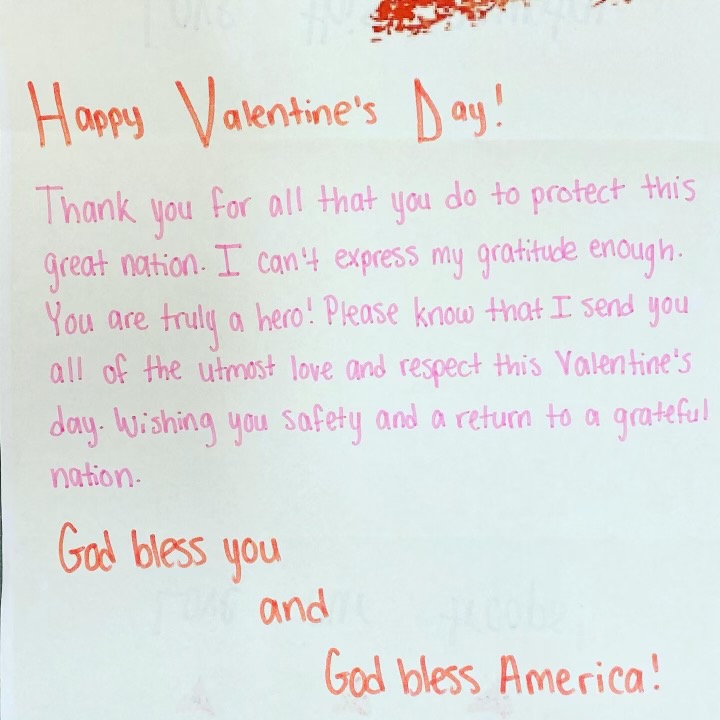 Happy Valentine's Day!
Thank you for all that you do to protect this
great nation. I can't express my gratitude enough.
You are truly a hero! Please know that I send you
all of the utmost love and respect this Valentine's
day. Wishing you safety and a return to a grateful
nation.
God bless you
and
God bless America!